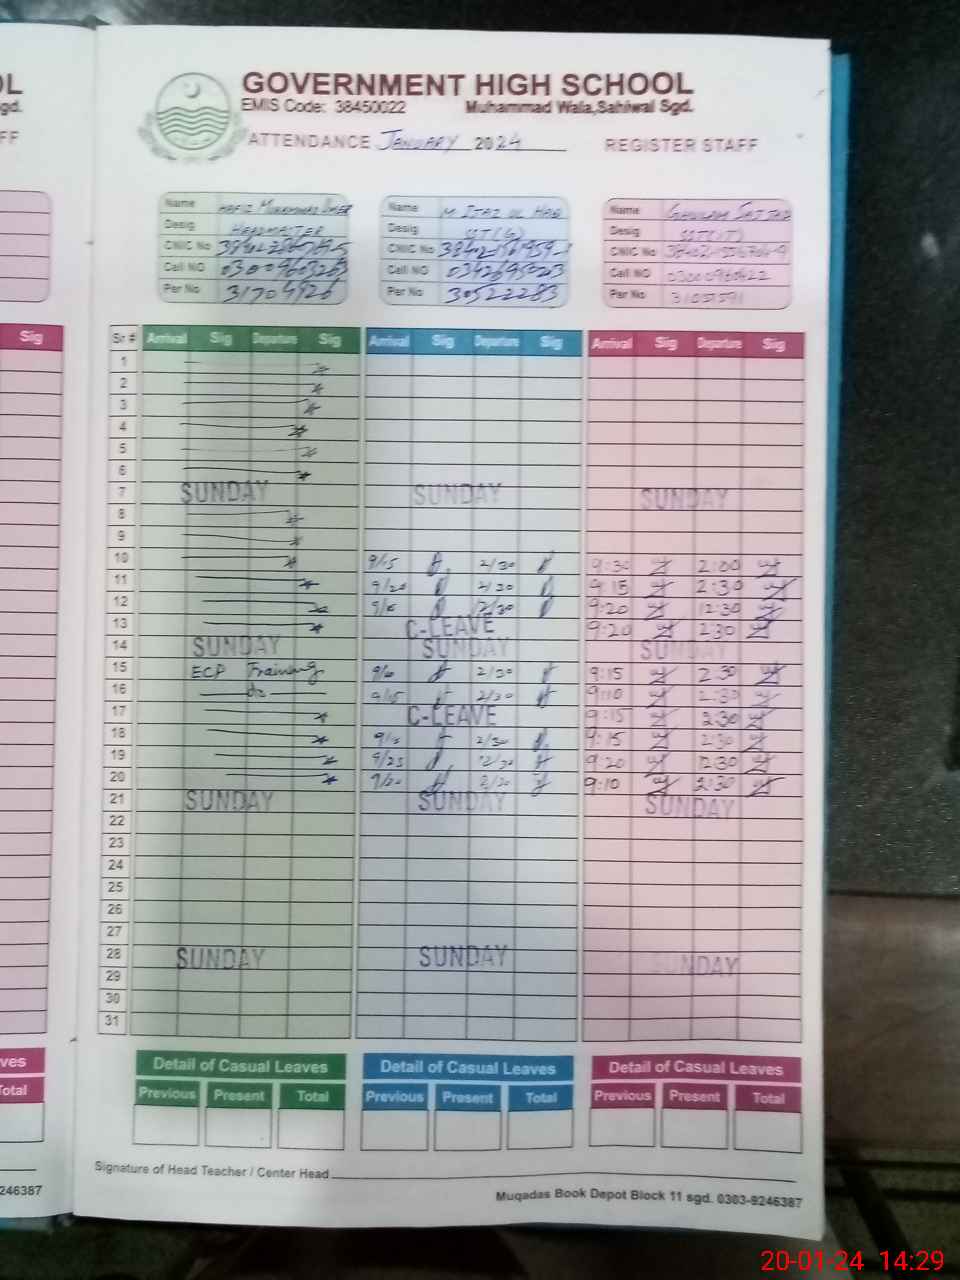 L
GOVERNMENT HIGH SCHOOL
gd.
EMIS Code: 38450022 Muhammad Wala,Sahiwal Sgd.
FF
ATTENDANCE JANUARY 2024 REGISTER STAFF
Name HAFIZ MUHAMMAD
Desig HEADMASTER
CNIC No
Cell NO
Per No 31704926
Name M IJAZ UL HAQ
Desig
CNIC No
Cell NO
Per No 30522283
Name GHULAM SATTAR
Desig SST(IT)
CNIC No
Cell NO 03000960422
Per No
Sig
Sr # Arrival Sig Departure Sig Arrival Sig Departure Sig Arrival Sig Departure Sig
1
2
3
4
5
6
7 SUNDAY SUNDAY SUNDAY
8
9
10 9/15 2/30 9:30 2:00
11 9/20 2/30 9:15 2:30
12 12/30 9:20 12:30
13 C-LEAVE 9:20 2:30
14 SUNDAY SUNDAY SUNDAY
15 ECP Training 2/30 9:15 2:30
16 do 9/15 2/30 9:10 2:30
17 C-LEAVE 9:15 2:30
18 2/30 9:15 2:30
19 9/25 12/30 9:20 12:30
20 9/20 2/30 9:10 2:30
21 SUNDAY SUNDAY SUNDAY
22
23
24
25
26
27
28 SUNDAY SUNDAY SUNDAY
29
30
31
ves
Detail of Casual Leaves Detail of Casual Leaves Detail of Casual Leaves
Total
Previous Present Total Previous Present Total Previous Present Total
Signature of Head Teacher / Center Head
246387
Muqadas Book Depot Block 11 sgd. 0303-9246387
20-01-24 14:29